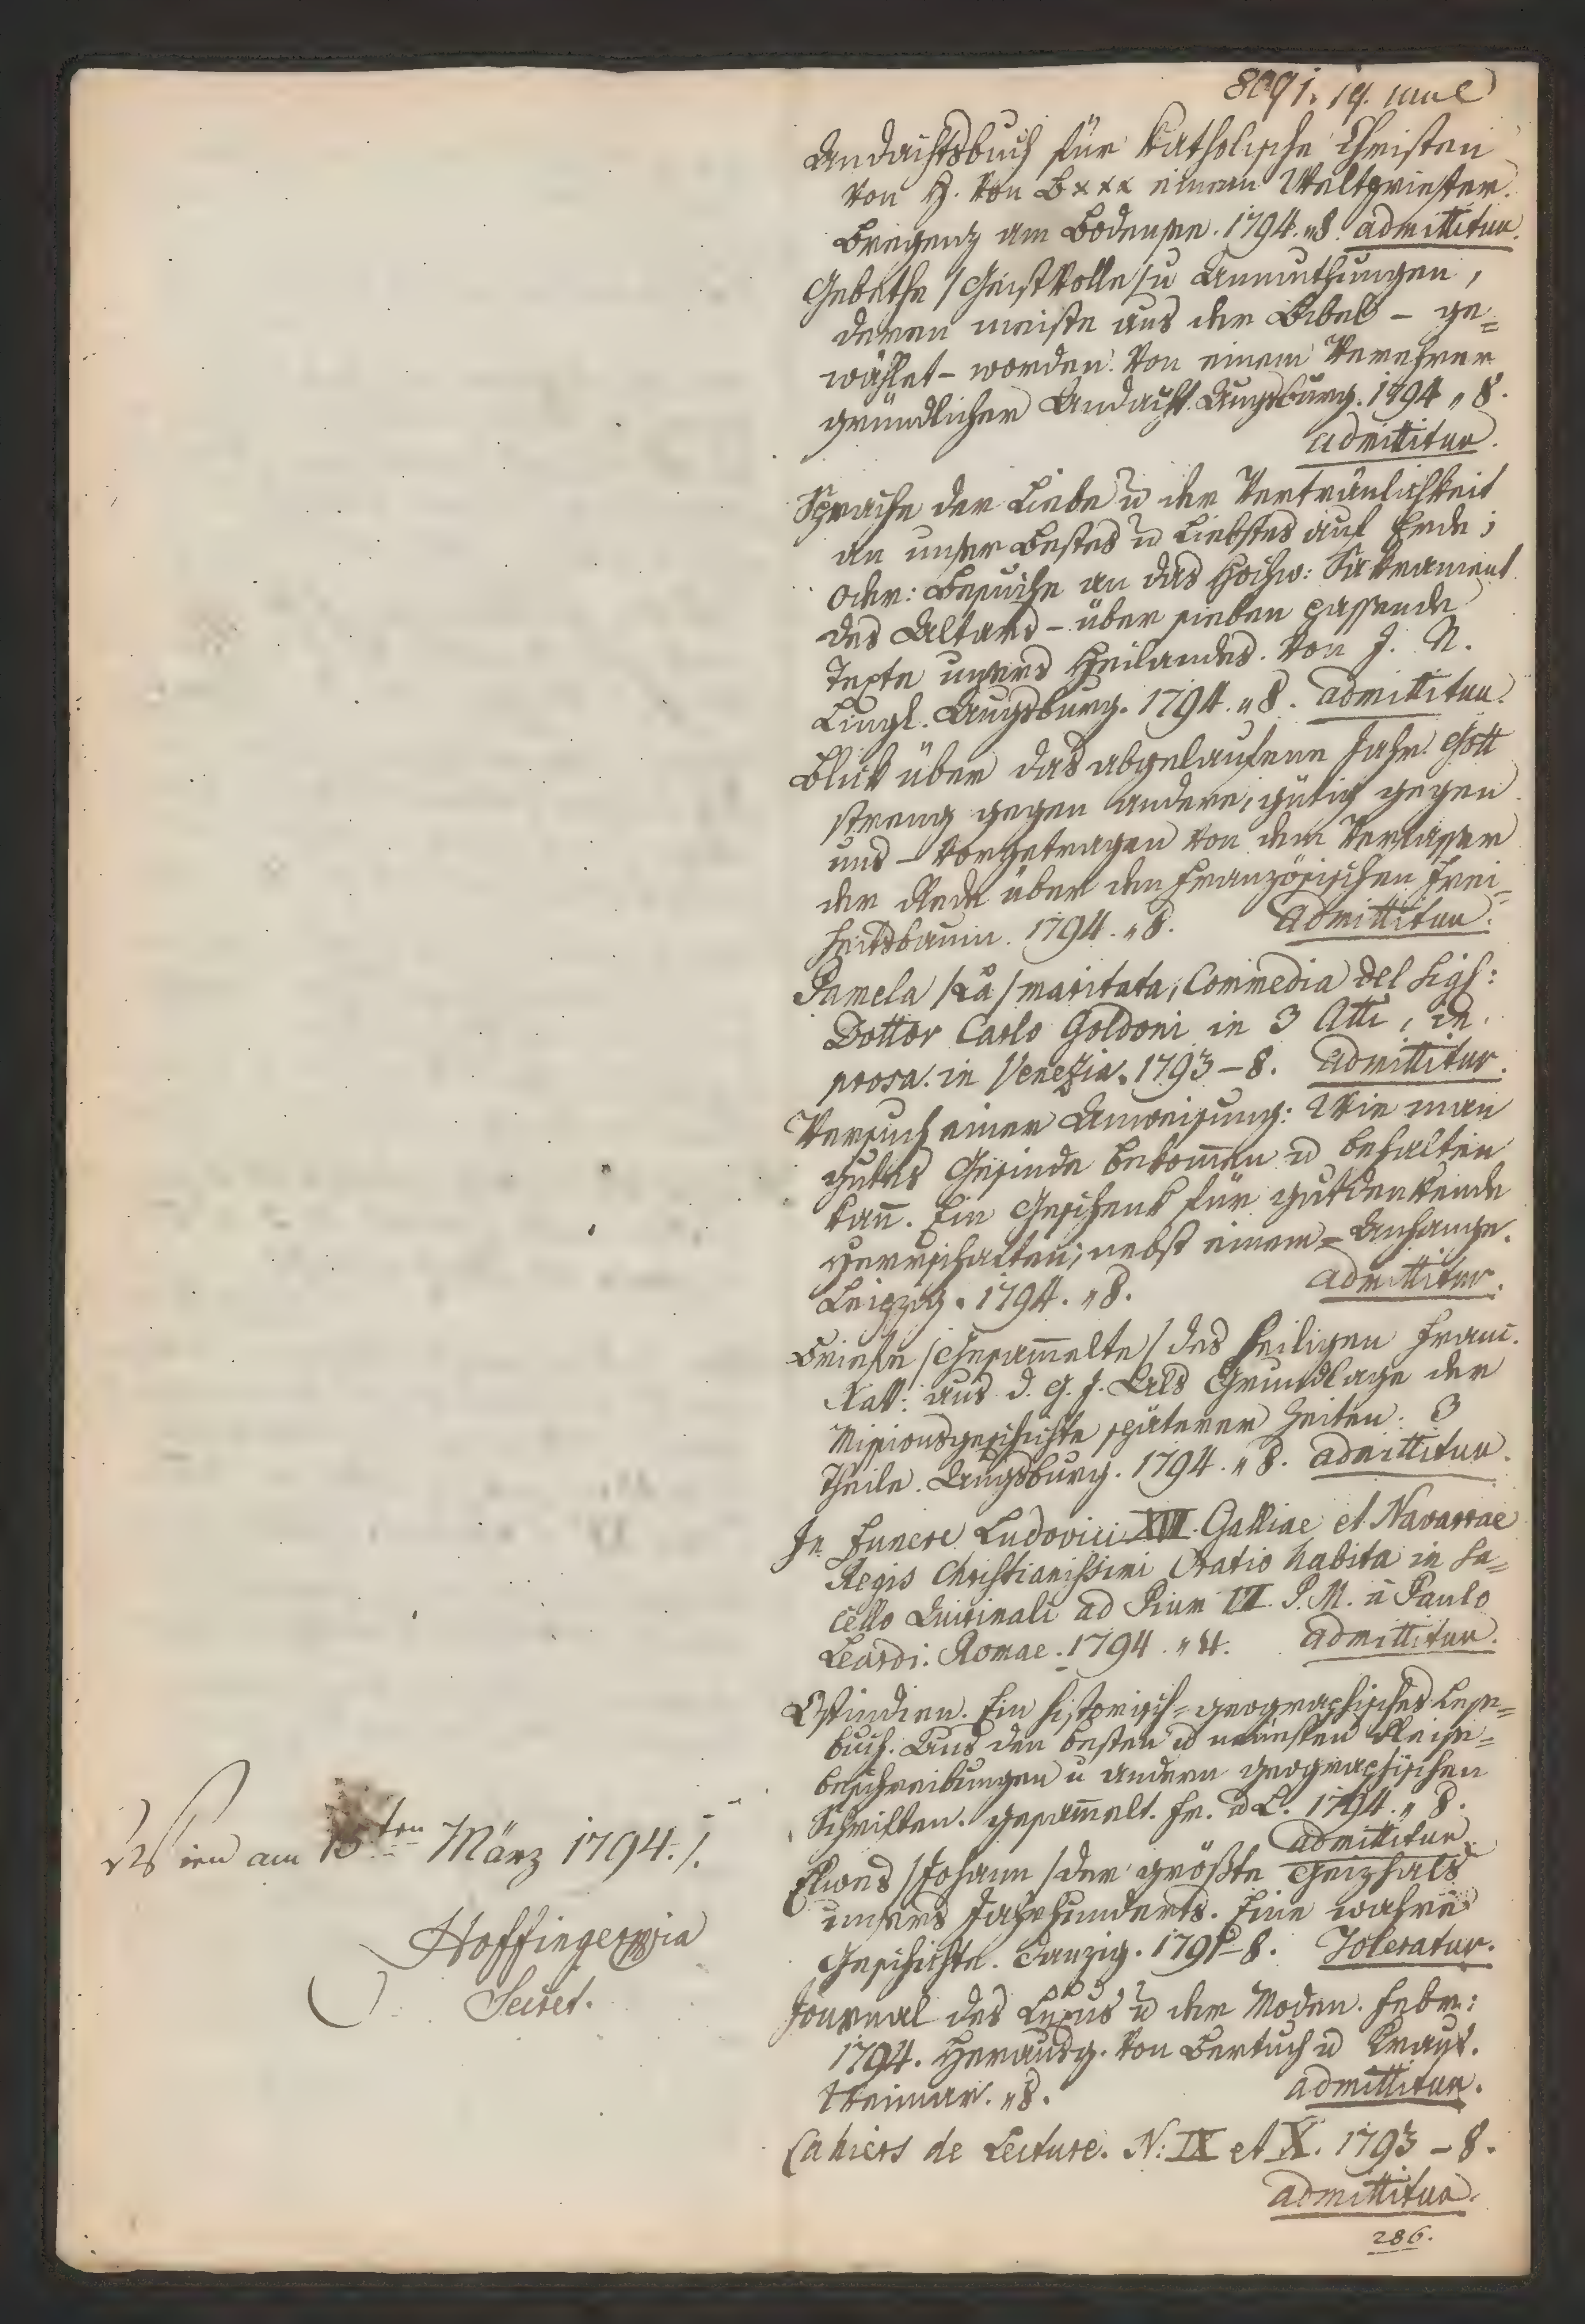 Andachtsbuch für Katholische Christen
von H. von B××× einem Weltpriester.
Bregenz am Bodensee. 1794. " 8. admittitur.
Gebethe /Geistvolle/ u Anmuthungen,
deren meiste aus der Bibel – ge=
wählet – worden. Von einem Verehrer
gründlicher Andacht. Augsburg. 1794 " 8.
admittitur.
Sprache der Liebe u der Verträulichkeit
an unser Bestes u Liebstes auf Erde;
oder: Besuche an das Hochw: Sakrament
des Altars – über sieben passende
Texte unsers Heilandes. Von J. N.
Lingl. Augsburg. 1794. " 8. admittitur.
Blick über das abgelaufene Jahr. Gott
streng gegen andere, gütig gegen
uns – vorgetragen von dem Verfasser
der Rede über den Französischen Frei=
heitsbaum. 1794. " 8. admittitur.
Pamela /La/ maritata, Commedia del Sigr:
Dottor Carlo Goldoni in 3 Atti, in
prosa. in Venezia. 1793 – 8. admittitur.
Versuch einer Anweisung: Wie man
gutes Gesinde bekom̄en u behalten
kan̄. Ein Geschenk für gutdenkende
Herrschaften; nebst einem – Anhange.
Leipzig. 1794. " 8. admittitur.
Briefe /Gesam̄elte/ des heiligen Franc.
Xav: aus d. G. J. Als Grundlage der
Missionsgeschichte späterer Zeiten. 3
Theile. Augsburg. 1794. " 8. admittitur.
In Funere Ludovici XVI. Galliae et Navarrae
Regis Christianissimi Oratio habita in Sa=
cello Quirinali ad Pium VI. P. M. à Paulo
Leardi. Romae. 1794. " 4. admittitur.
Ostindien. Ein historisch=geographisches Lese=
buch. Aus den besten u neuesten Reise=
beschreibungen u andern geographischen
Schriften. gesam̄elt. Fr. u L. 1794. " 8.
admittitur.
Wien am 15ten März 1794./.
Elwes /Johann/ der größte Geizhals
unsers Jahrhunderts. Eine wahre
Hoffinger
Geschichte. Danzig. 1791 – 8. Toleratur.
Secret.
Journal des Luxus u der Moden. Febr:
1794. Herausg. von Bertuch u Kraus.
Weimar. " 8. admittitur.
Cahiers de Lecture. N: IX et X. 1793 – 8.
admittitur.
286.